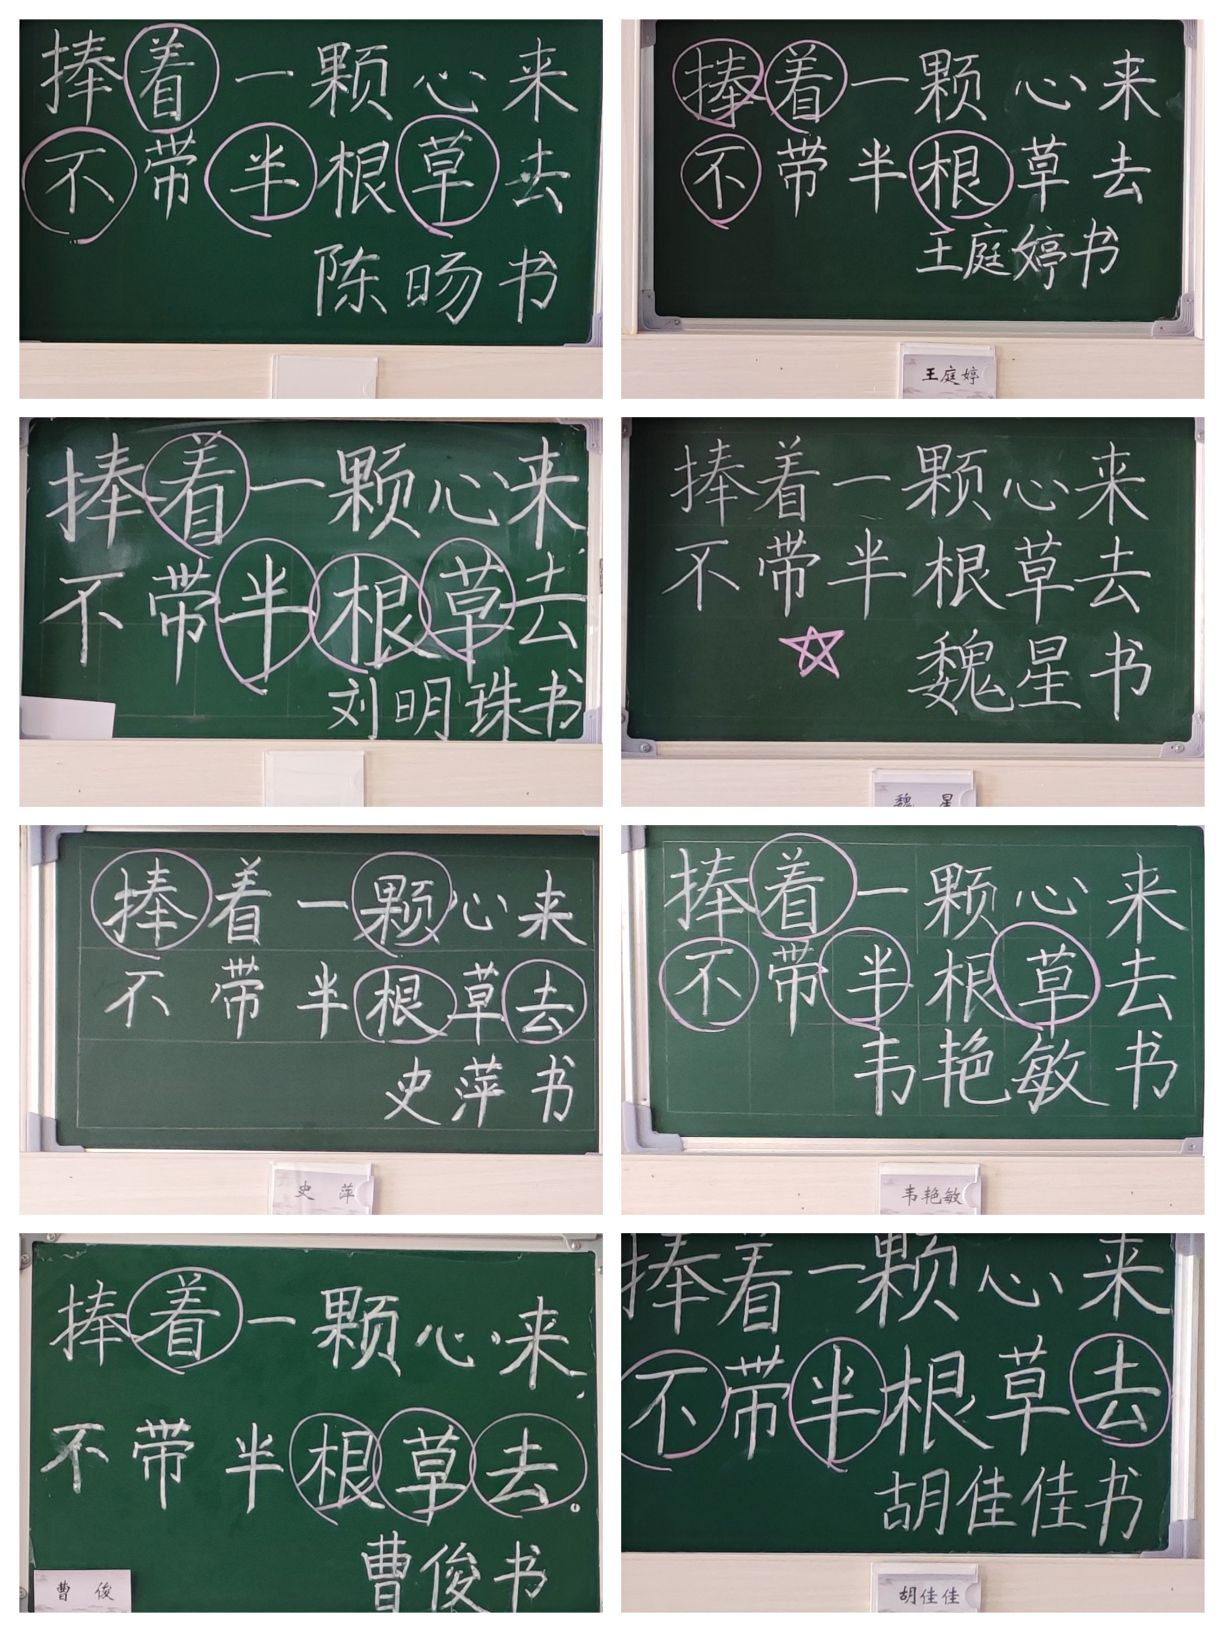 捧着一颗心来
不带半根草去
陈旸书
捧着一颗心来
不带半根草去
王庭婷书
王庭婷
捧着一颗心来
不带半根草去
刘明珠书
捧着一颗心来
不带半根草去
魏星书
魏星
捧着一颗心来
不带半根草去
史萍书
史萍
捧着一颗心来
不带半根草去
韦艳敏书
韦艳敏
捧着一颗心来
不带半根草去
曹俊书
曹俊
捧着一颗心来
不带半根草去
胡佳佳书
胡佳佳